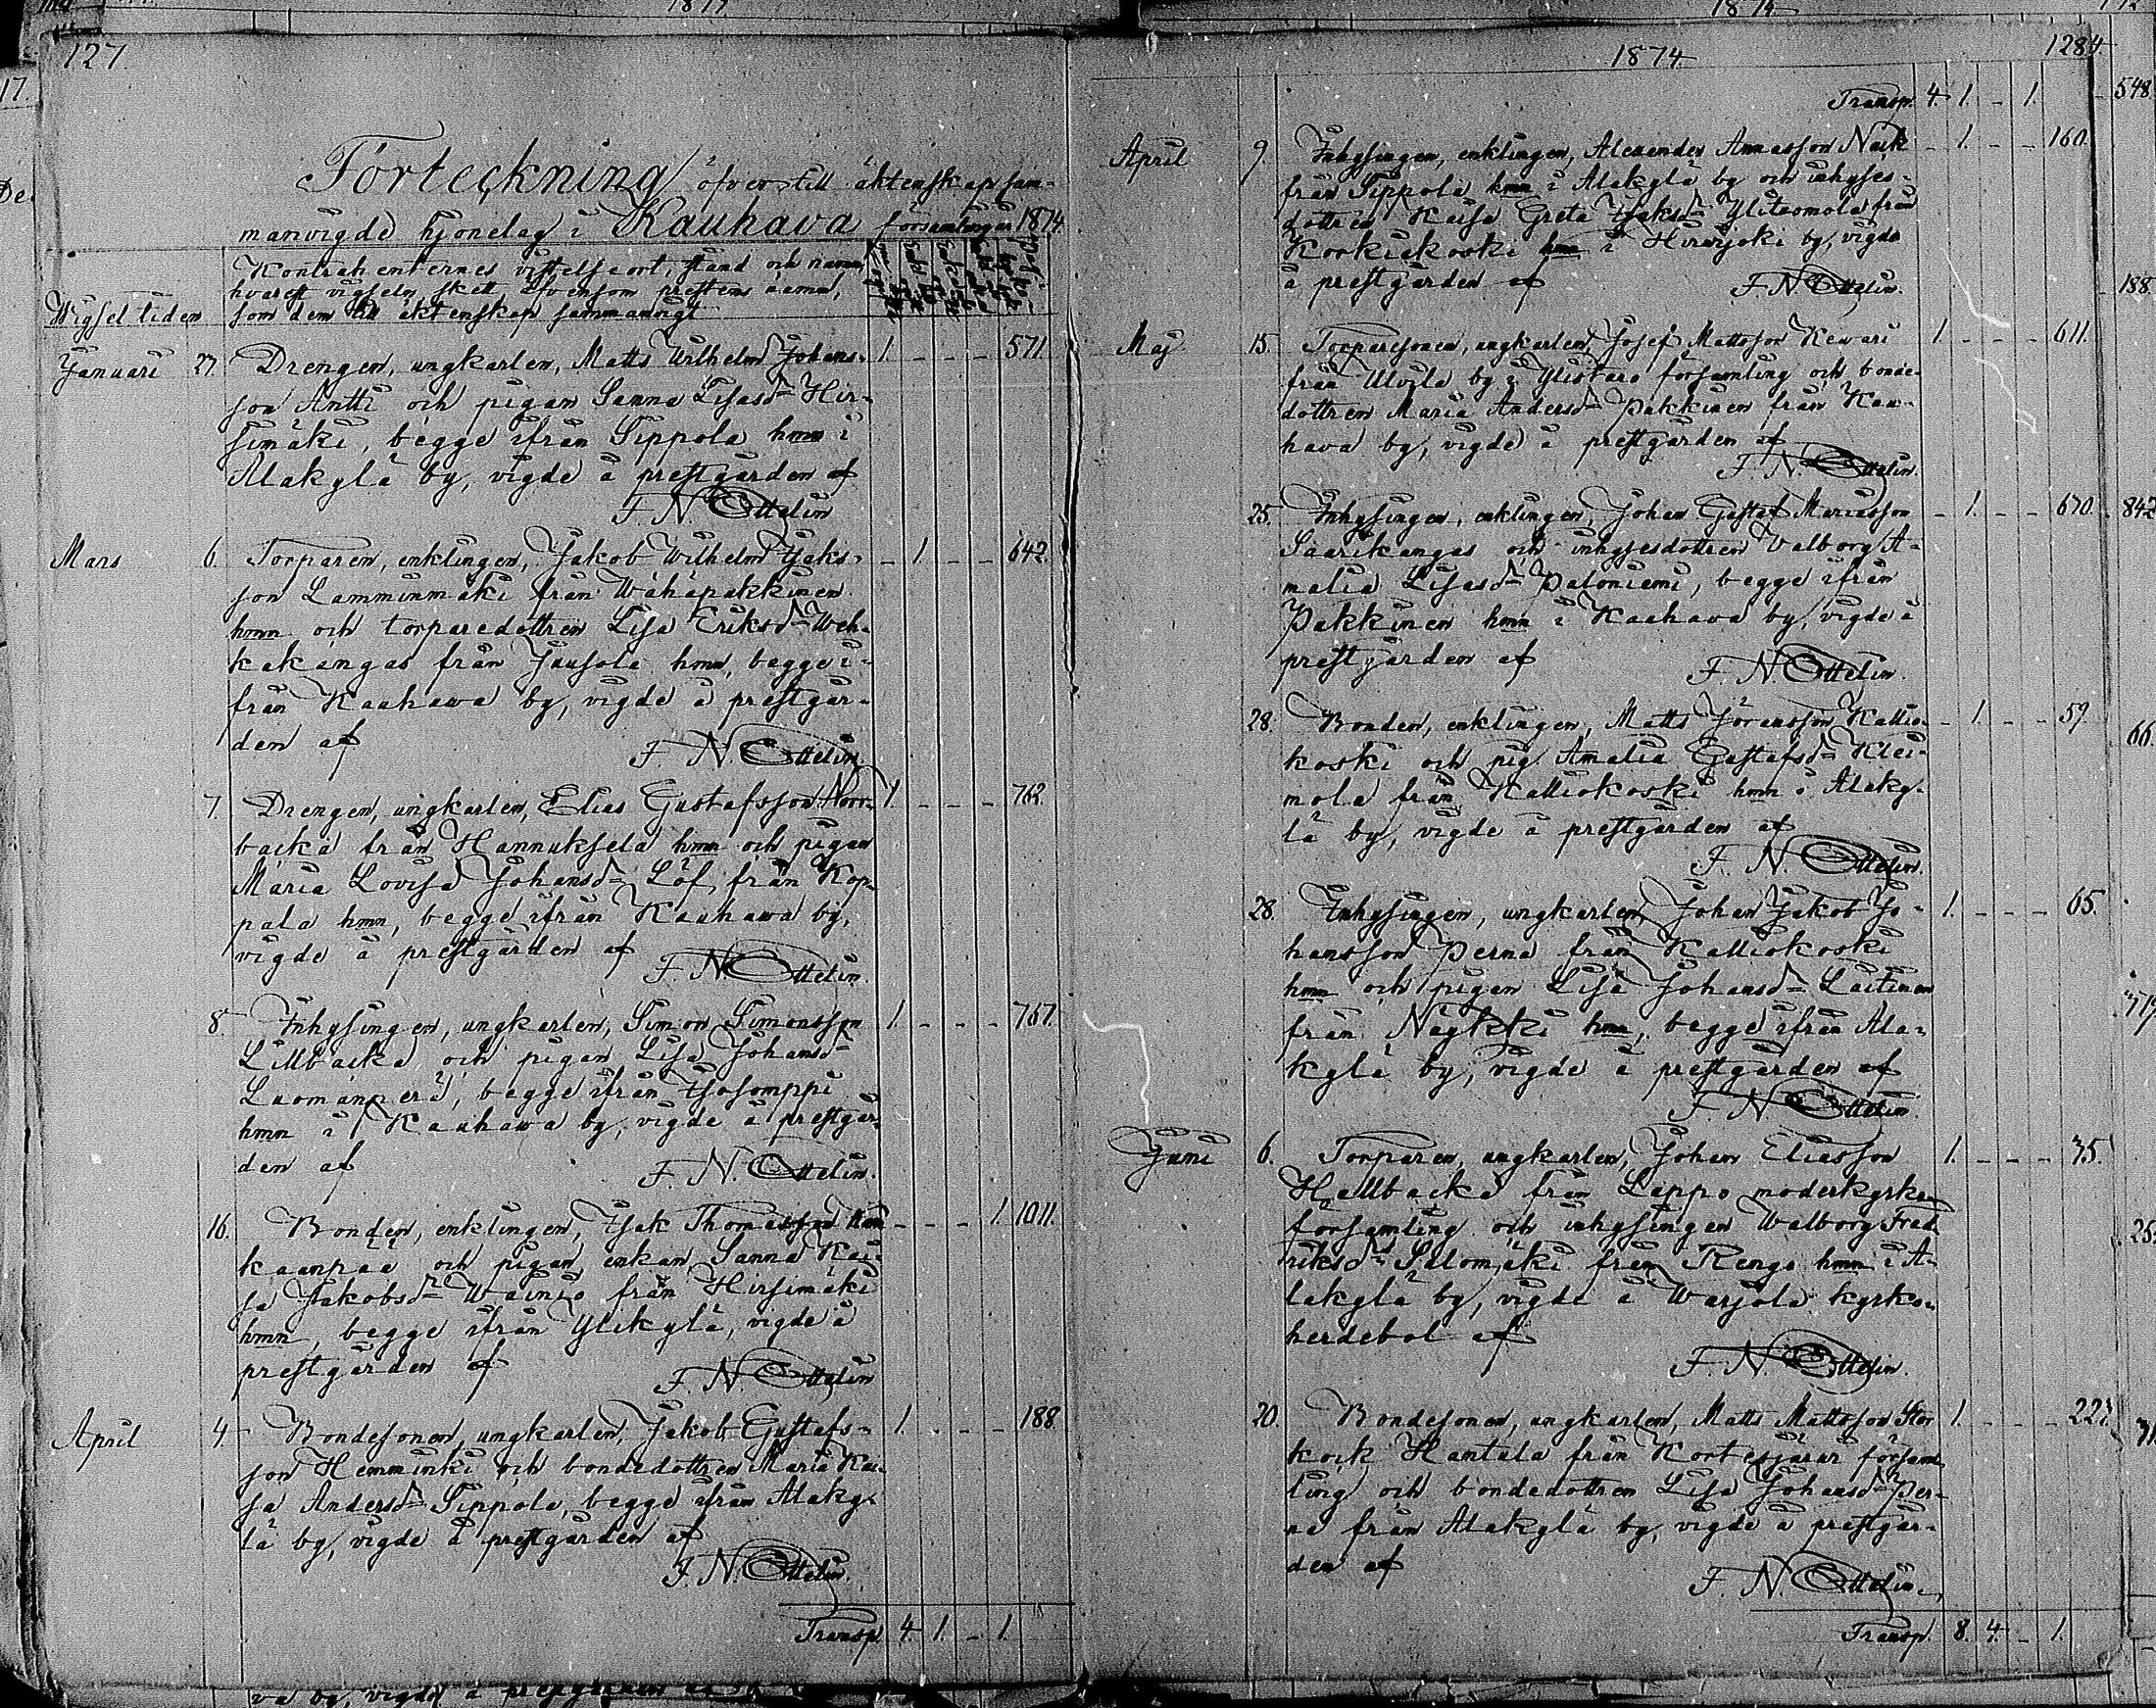 127.
Förteckning öfver till äktenskap sam-
manvigde hjonelag i Kauhava församling år 1874
Wigseltiden
Kontrahenternes vistelseort, stånd och namn,
hvarest vigseln skett äfvensom prestens namn,
som dem till äktenskap sammanvigt
Januari 27. Drengen, ungkarlen, Matts Wilhelm Johans- 1. - - - 571.
son Antti och pigan Sanna Lisasdr Hir-
simäki, begge ifrån Sippola hmn i
Alakylä by, vigde å prestgården af
F. N. Ottelin
Mars 6. Torparen, enklingen, Jakob Wilhelm Isaks- - 1. - - 642.
son Lamminmäki från Wähäpakkinen
hmn och torparedottren Lisa Eriksdr Weh-
kakangas från Jausola hmn, begge i-
från Kauhawa by, vigde å prestgår-
den af
F. N. Ottelin
7. Drengen, ungkarlen, Elias Gustafsson Norr- 1. - - - 762.
backa från Hannuksela hmn och pigan
Maria Lovisa Johansdr Löf från Kop-
pala hmn, begge ifrån Kauhawa by,
vigde å prestgården af
F. N. Ottelin.
8 Inhysingen, ungkarlen, Simon Simonsson 1. - - - 767.
Lillbacka och pigan Lisa Johansdr
Luomanperä, begge ifrån Isosomppi
hmn i Kauhawa by, vigde å prestgår-
den af
F. N. Ottelin.
16. Bonden, enklingen, Isak Thomasson - - - 1. 1011.
kaanpää och pigan, enkan, Sanna Kai-
sa Jakobsdr Wainio från Hirsimäki
hmn, begge ifrån Ylikylä, vigde å
prestgården af
F. N. Ottelin
April 4. Bondesonen, ungkarlen, Jakob Gustafs- 1. - - - 188.
son Hemminki och bondedottren Maria Kai-
sa Andersdr Sippola, begge ifrån Alaky-
lä by, vigde å prestgården af
F. N. Ottelin.
Transp. 4. 1. - 1.
1874
1284
Transp. 4. 1. - 1.
April 9. Inhysingen, enklingen, Alexander Annasson - 1. - - 160.
från Sippola hmn i Alakylä by och inhyses-
dottren Kaisa Greta Isaksdr Ylitaomola från
Korkiakoski hmn i Hirvijoki by, vigde
å prestgården af
F. N. Ottelin.
Maj 15. Torparesonen, ungkarlen, Josef Mattsson Kevari 1. - - - 611.
från Ulvila by i Ylistaro församling och bonde-
dottren Maria Andersdr Pakkinen från Kau-
hava by, vigde å prestgården af
F. N. Ottelin.
25. Inhysingen, enklingen, Johan Gustaf Mariasson - 1. - - 670.
Saarikangas och inhysesdottren Valborg A-
malia Lisasdr Paloniemi, begge ifrån
Pakkinen hmn i Kauhava by, vigde å
prestgården af
F. N. Ottelin.
28. Bonden, enklingen, Matts Göransson Kallio- - 1. - - 59.
koski och pig. Amalia Gustafsdr Klei-
mola från Kalliokoski hmn i Alaky-
lä by, vigde å prestgården af
F. N. Ottelin.
28. Inhysingen, ungkarlen, Johan Jakob Jo- 1. - - - 65.
hansson Perna från Kalliokoski
hmn och pigan Lisa Johansdr Laitinen
från Näykki hmn, begge ifrån Ala-
kylä by, vigde å prestgården af
F. N. Ottelin
Juni 6. Torparen, ungkarlen, Johan Eliasson 1. - - - 75.
Hallbacka från Lappo moderkyrko
församling och inhysingen Walborg Fred-
riksdr Salomäki från Rengo hmn i A-
lakylä by, vigde å Warjola kyrko-
herdebol af
F. N. Ottelin.
20. Bondesonen, ungkarlen, Matts Mattsson Stor 1. - - - 221.
kock Hantula från Kortesjärvi försam-
ling och bondedottren Lisa Johansdr Per-
na från Alakylä by, vigde å prestgår-
den af
F. N. Ottelin.
Transp. 8. 4. - 1.